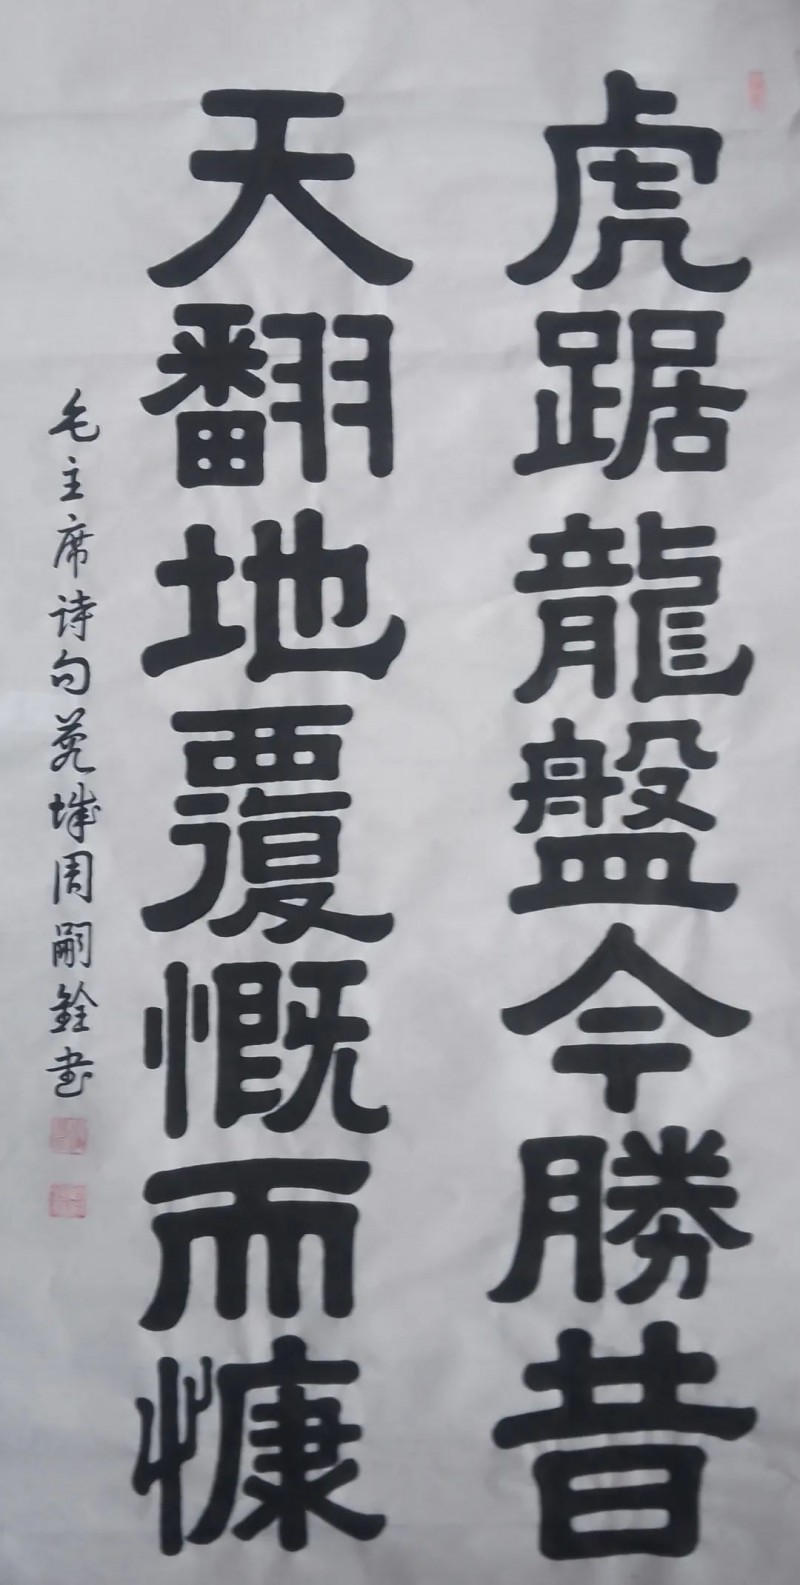 虎踞龍盤今勝昔
天翻地覆慨而慷
毛主席诗句莞城周嗣銓书